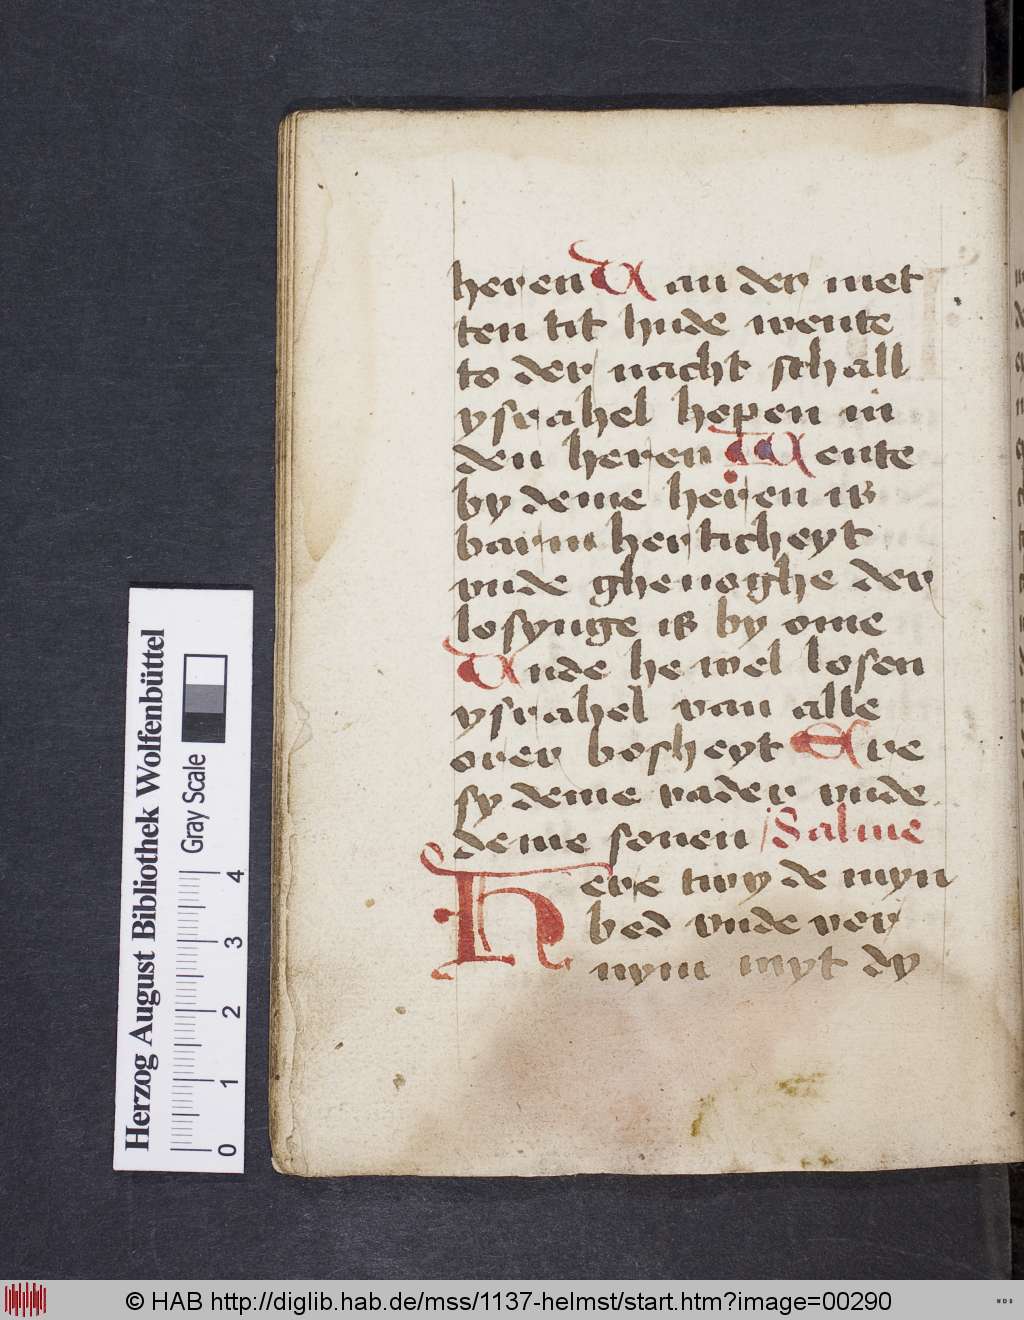 heren Van der met
ten tit hude wente
to der nacht schall
ysrahel hopen in
den heren Wente
by deme heren is
barmherticheyt
vnde ghenoghe der
losynge is by ome
Vnde he wel losen
ysrahel van alle
orer bosheyt Ere
sy deme vader vnde
deme sonen Salme
Here twy de myn
bed vnde ver
nym myt dy
Herzog August Bibliothek Wolfenbüttel
Gray Scale
0 1 2 3 4
© HAB http://diglib.hab.de/mss/1137-helmst/start.htm?image=00290